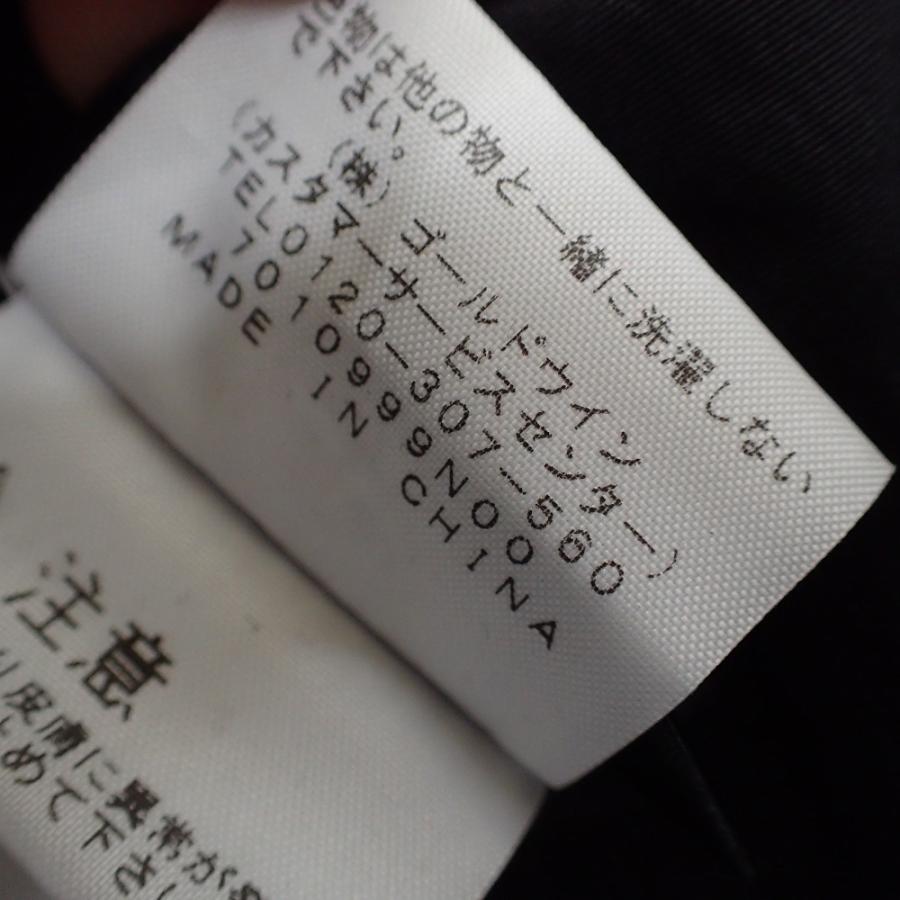 物は他の物と一緒に洗濯しない
で下さい。
(株)ゴールドウイン
(カスタマーサービスセンター)
TEL0120-307-560
701099N00
MADE IN CHINA
注意
皮膚に異常が
めて下さい